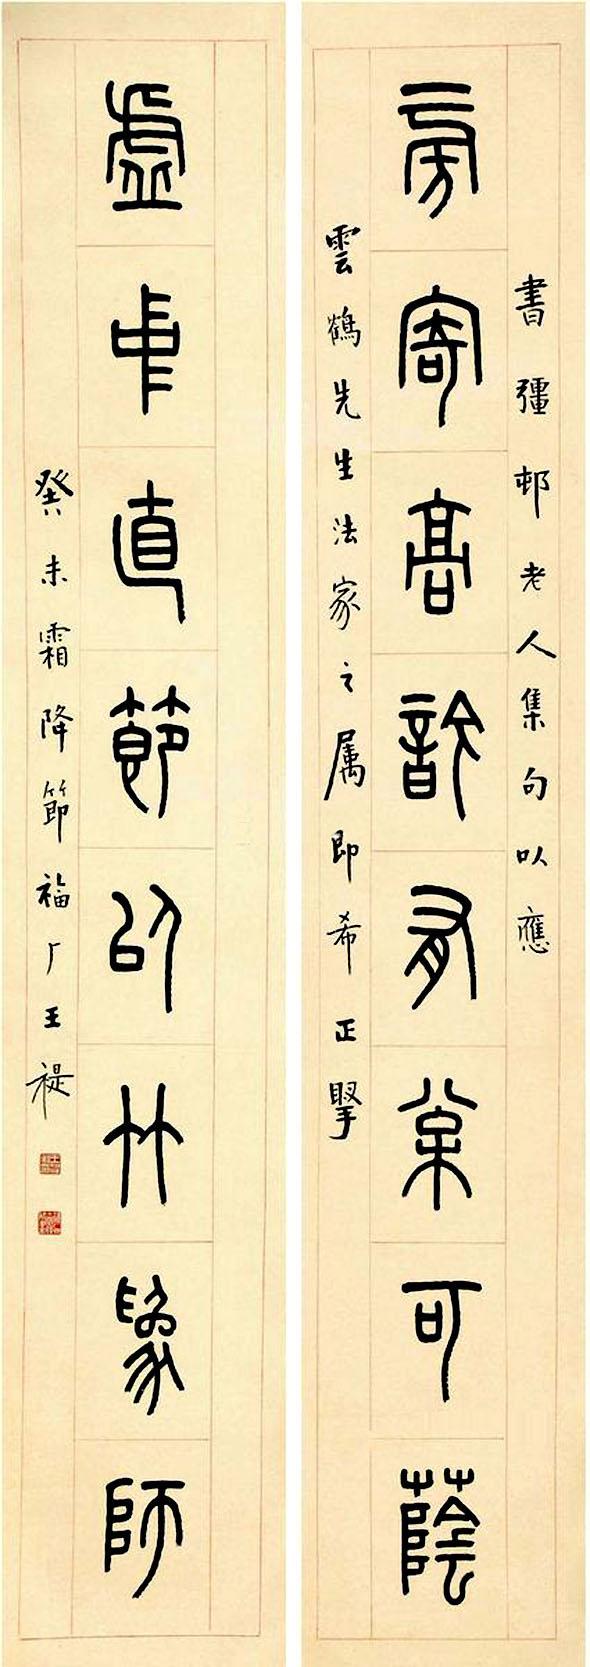 書彊邨老人集句以應
旁寄高詠有棠可蔭
雲鶴先生法家之属即希正掔
虛中直節以竹為師
癸未霜降節福厂王禔